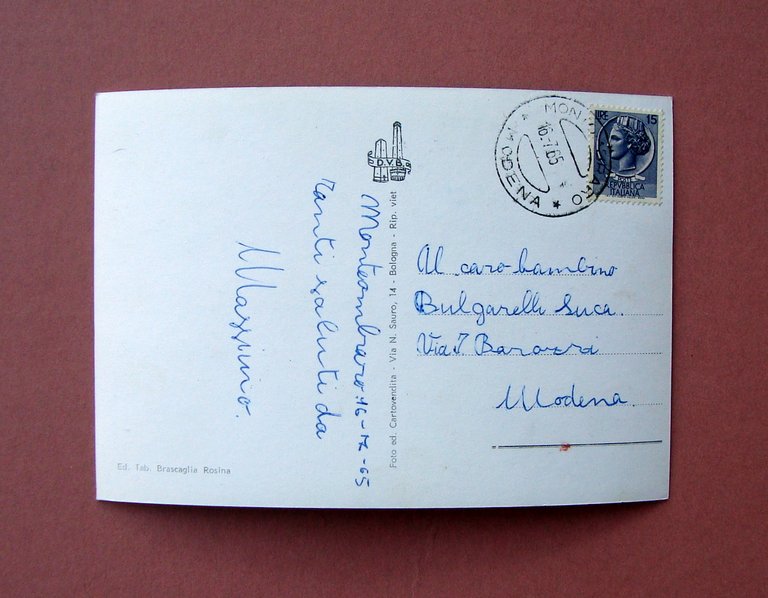 Monteombraro 16-7-65
Tanti saluti da
Massimo.
D.V.B.
Foto ed. Cartovendita - Via N. Sauro, 14 - Bologna - Rip. viet
Ed. Tab. Brascaglia Rosina
MONTEOMBRARO
16.7.65
* MODENA *
LIRE 15
POSTE
REPVBBLICA
ITALIANA
Al caro bambino
Bulgarelli Luca.
Via J Barozzi
Modena.